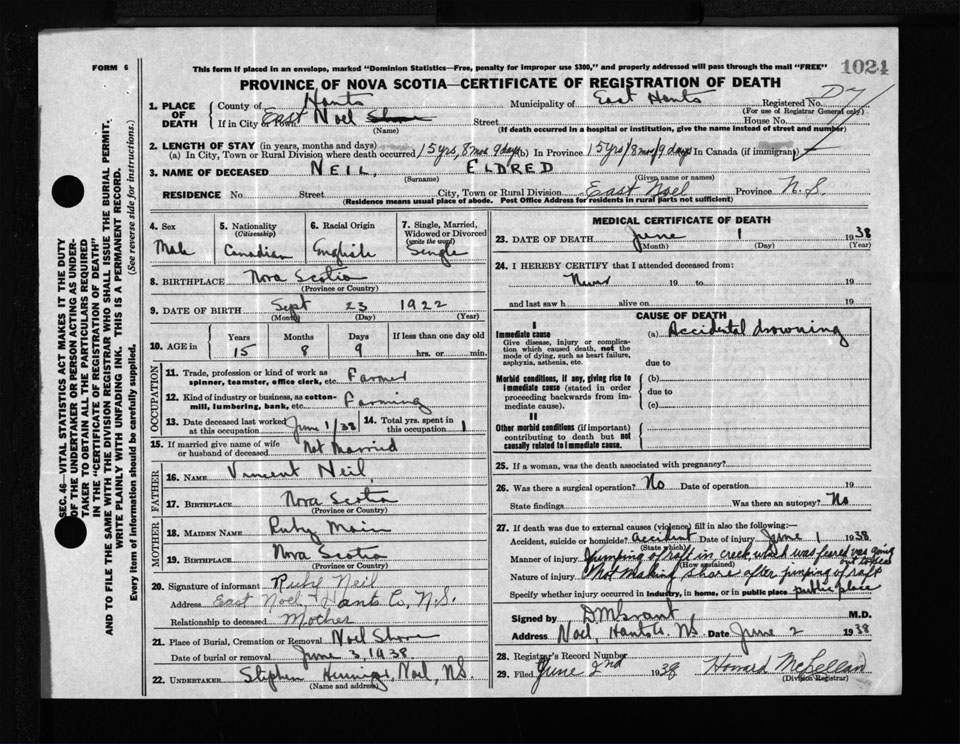 FORM 6
This form if placed in an envelope, marked "Dominion Statistics—Free, penalty for improper use $300," and properly addressed will pass through the mail "FREE"
1024
PROVINCE OF NOVA SCOTIA—CERTIFICATE OF REGISTRATION OF DEATH
1. PLACE OF DEATH { County of Hants Municipality of East Hants Registered No. D7
(For use of Registrar General only)
If in City or Town East Noel Shore Street House No.
(Name) (If death occurred in a hospital or institution, give the name instead of street and number)
2. LENGTH OF STAY (in years, months and days)
(a) In City, Town or Rural Division where death occurred 15 yrs, 8 mos 9 days (b) In Province 15 yrs/8 mos/9 days In Canada (if immigrant)
3. NAME OF DECEASED NEIL, ELDRED
(Surname) (Given name or names)
RESIDENCE No Street City, Town or Rural Division East Noel Province N.S.
(Residence means usual place of abode. Post Office Address for residents in rural parts not sufficient)
4. Sex Male
5. Nationality (Citizenship) Canadian
6. Racial Origin English
7. Single, Married, Widowed or Divorced (write the word) Single
8. BIRTHPLACE Nova Scotia
(Province or Country)
9. DATE OF BIRTH Sept 23 1922
(Month) (Day) (Year)
10. AGE in Years Months Days If less than one day old
15 8 9 hrs. or min.
OCCUPATION
11. Trade, profession or kind of work as spinner, teamster, office clerk, etc. Farmer
12. Kind of industry or business, as cotton-mill, lumbering, bank, etc. Farming
13. Date deceased last worked at this occupation June 1/38
14. Total yrs. spent in this occupation 1
15. If married give name of wife or husband of deceased Not Married
FATHER
16. NAME Vincent Neil,
17. BIRTHPLACE Nova Scotia
(Province or Country)
MOTHER
18. MAIDEN NAME Ruby Main
19. BIRTHPLACE Nova Scotia
(Province or Country)
20. Signature of informant Neil
Address East Noel Hants Co, N.S.
Relationship to deceased Mother
21. Place of Burial, Cremation or Removal Noel Shore
Date of burial or removal June 3, 1938
22. UNDERTAKER Stephen Noel, NS.
(Name and address)
MEDICAL CERTIFICATE OF DEATH
23. DATE OF DEATH June 1 1938
(Month) (Day) (Year)
24. I HEREBY CERTIFY that I attended deceased from:
Never 19 to 19
and last saw h alive on 19
CAUSE OF DEATH
I
Immediate cause (a) Accidental drowning
Give disease, injury or complication which caused death, not the mode of dying, such as heart failure, asphyxia, asthenia, etc.
due to
Morbid conditions, if any, giving rise to immediate cause (stated in order proceeding backwards from immediate cause).
(b)
due to
(c)
II
Other morbid conditions (if important) contributing to death but not causally related to immediate cause.
25. If a woman, was the death associated with pregnancy?
26. Was there a surgical operation? No Date of operation 19
State findings Was there an autopsy? No
27. If death was due to external causes (violence) fill in also the following:—
Accident, suicide or homicide? accident Date of injury June 1 1938
(State which)
Manner of injury Jumping of raft in creek, was feared was going out to sea
(How sustained)
Nature of injury Not making shore after jumping of raft
Specify whether injury occurred in industry, in home, or in public place public place
Signed by M.D.
Address Noel, Hants Co. NS Date June 2 1938
28. Registrar's Record Number
29. Filed June 2nd 1938 Howard McLellan
(Division Registrar)
SEC. 46—VITAL STATISTICS ACT MAKES IT THE DUTY
OF THE UNDERTAKER OR PERSON ACTING AS UNDER-
TAKER TO OBTAIN ALL THE PARTICULARS REQUIRED
IN THE "CERTIFICATE OF REGISTRATION OF DEATH"
AND TO FILE THE SAME WITH THE DIVISION REGISTRAR WHO SHALL ISSUE THE BURIAL PERMIT.
WRITE PLAINLY WITH UNFADING INK. THIS IS A PERMANENT RECORD.
Every item of information should be carefully supplied. (See reverse side for instructions.)